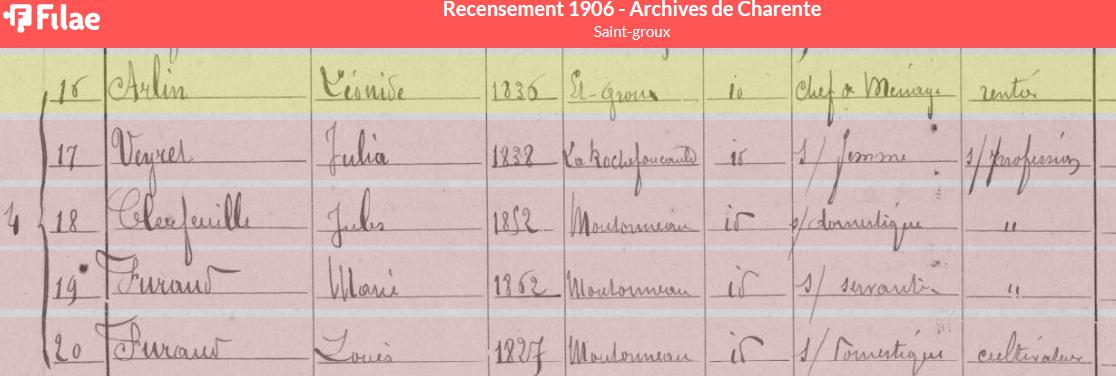 Filae
Recensement 1906 - Archives de Charente
Saint-groux
16 Arlin Léonide 1836 St-Groux id Chef de Ménage rentier
17 Veyret Julia 1838 La Rochefoucauld id s/ femme s/ profession
4 18 Clerfeuille Jules 1852 Moutonneau id s/ domestique "
19 Furaud Marie 1862 Moutonneau id s/ servante "
20 Furaud Louis 1827 Moutonneau id s/ domestique cultivateur